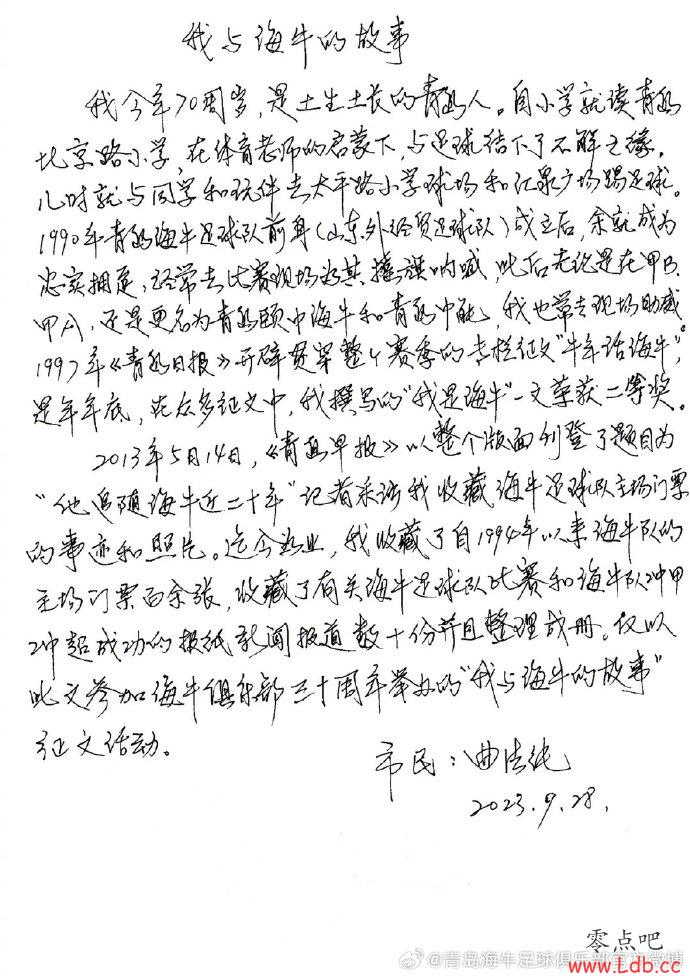 我与海牛的故事
我今年70周岁，是土生土长的青岛人。自小学就读青岛
北京路小学，在体育老师的启蒙下，与足球结下了不解之缘。
儿时就与同学和玩伴去太平路小学球场和汇泉广场踢足球。
1990年青岛海牛足球队前身（山东外经贸足球队）成立后，余就成为
忠实拥趸，经常去比赛现场为其摇旗呐喊，此后无论是在甲B.
甲A，还是更名为青岛颐中海牛和青岛中能，我也常去现场助威。
1997年《青岛日报》开辟贯穿整个赛季的专栏征文“牛年话海牛”，
是年年底，在众多征文中，我撰写的“我是海牛”一文荣获二等奖。
2013年5月14日，《青岛早报》以整个版面刊登了题目为
“他追随海牛近二十年”记者采访我收藏海牛足球队主场门票
的事迹和照片。迄今为止，我收藏了自1994年以来海牛队的
主场门票百余张，收藏了有关海牛足球队比赛和海牛队冲甲
冲超成功的报纸新闻报道数十份并且整理成册。仅以
此文参加海牛俱乐部三十周年举办的“我与海牛的故事”
征文活动。
市民：曲法纯
2023.9.28.
零点吧
@青岛海牛足球俱乐部官方微博
www.Ldb.cc